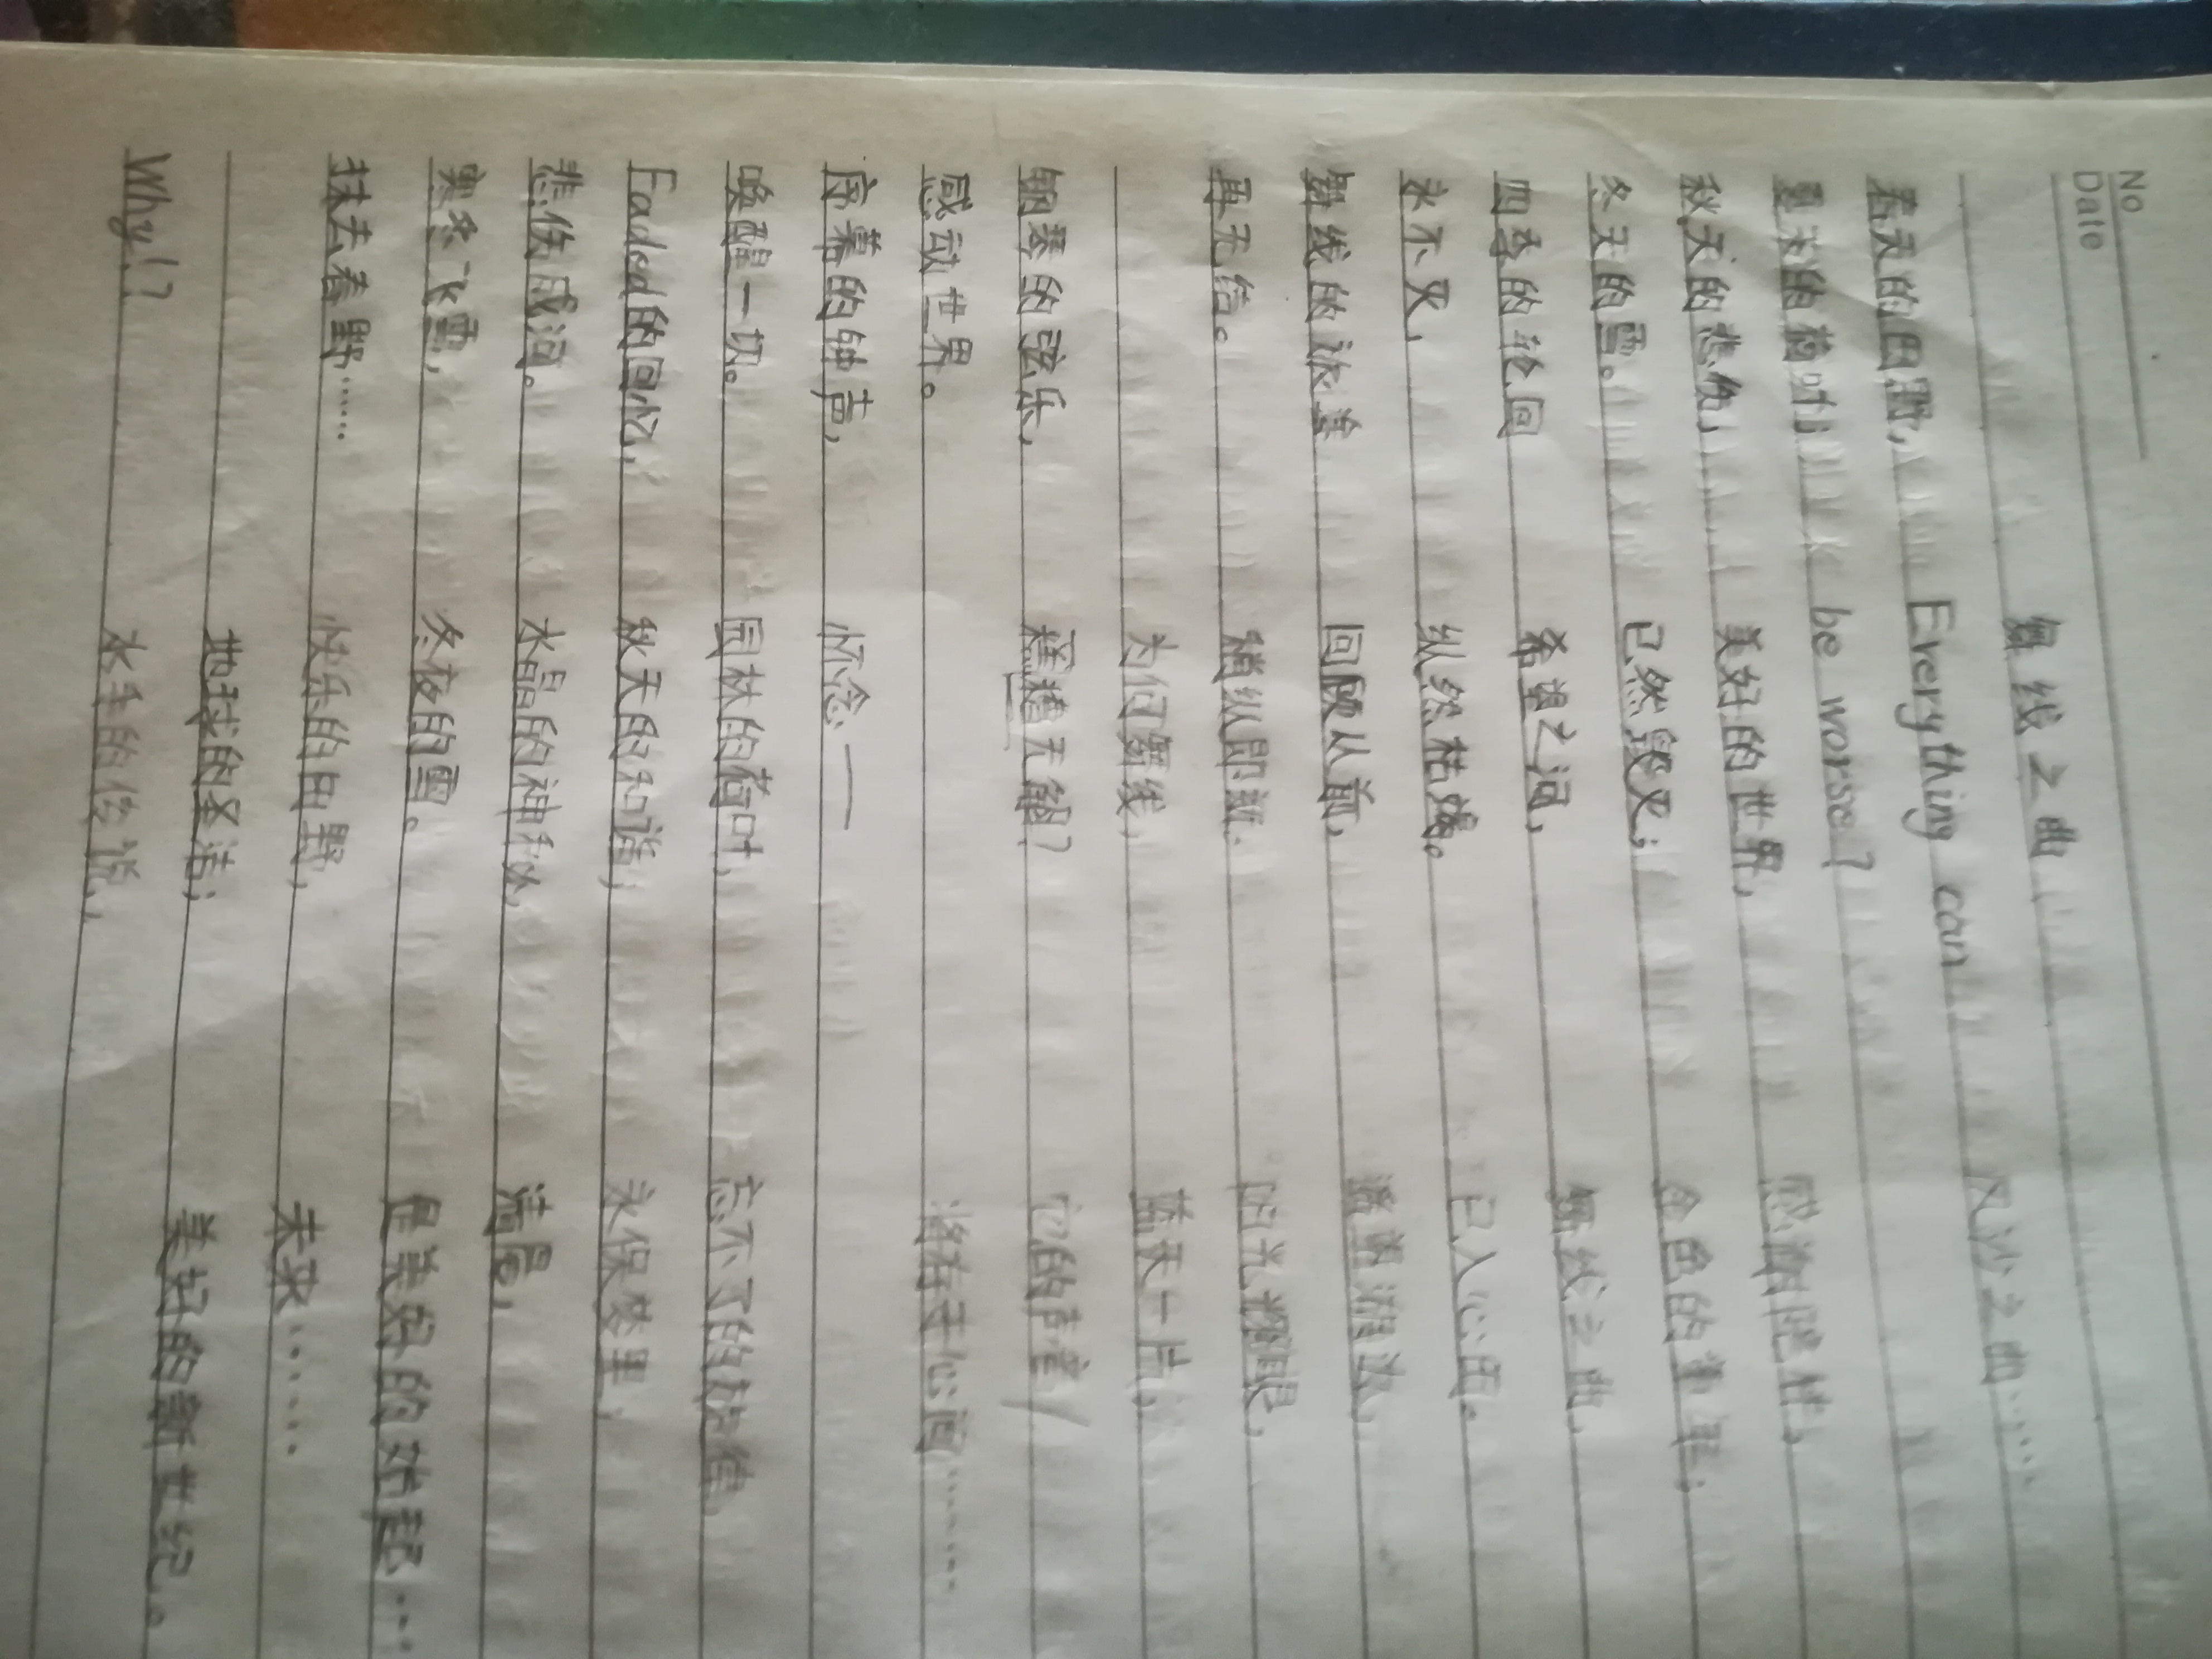 No
Date
舞线之曲
春天的田野,
夏天的荷叶,
秋天的悲伤,
冬天的雪。
四季的轮回
永不灭,
舞线的旅
再无结。
钢琴的弦乐,
感动世界。
序幕的钟声,
唤醒一切。
Faded的回忆,
悲伤成河。
寒冬飞雪,
抹去春野……
Why!?
Everything can
be worse?
美好的世界,
已然毁灭;
希望之河,
纵然枯燥。
回顾从前,
稍纵即逝.
为何舞线,
糟无能?
怀念——
园林的荷叶,
秋天的和谐;
水晶的神秘,
冬夜的雪。
快乐的田野,
地球的圣洁;
水手的传说,
风沙之曲……
感谢陪伴,
金色的童年;
舞线之曲,
已入心田。
的光耀眼,
蓝天一片,
它的声音
将存于心间……
忘不了的
永保梦里,
清晨,
是美好的
未来……
美好的新世纪。